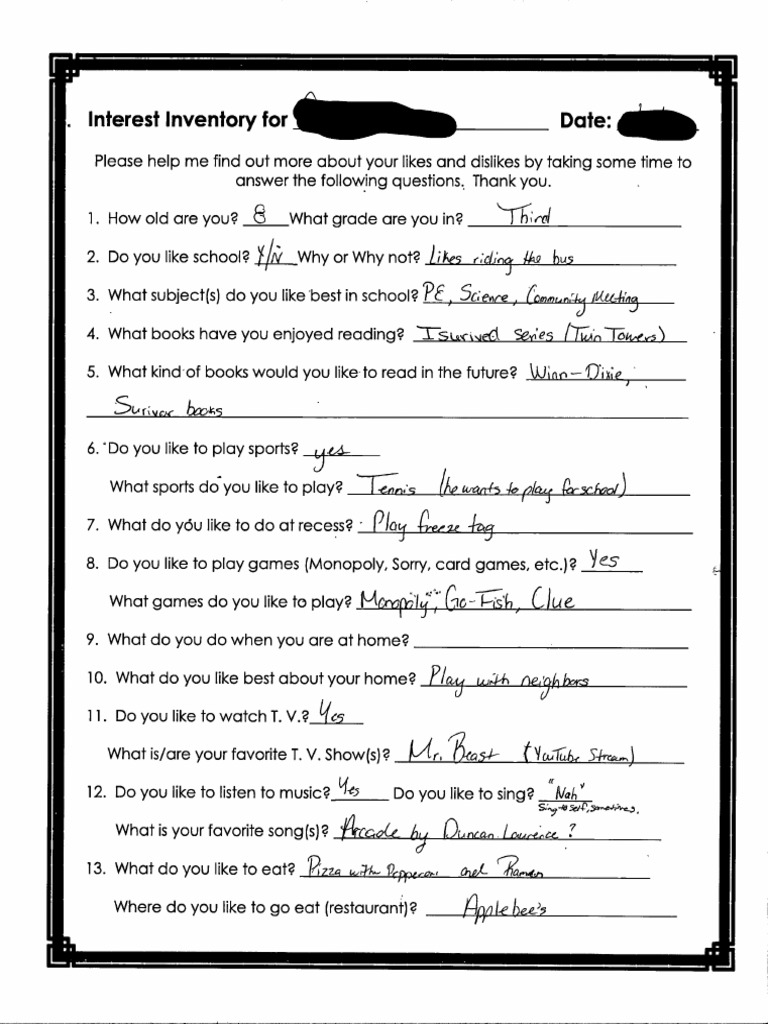 Interest Inventory for Date:
Please help me find out more about your likes and dislikes by taking some time to
answer the following questions. Thank you.
1. How old are you? 8 What grade are you in? Third
2. Do you like school? Y/N Why or Why not? Likes riding the bus
3. What subject(s) do you like best in school? PE, Science, Community Meeting
4. What books have you enjoyed reading? I surived series (Twin Towers)
5. What kind of books would you like to read in the future? Winn-Dixie,
Surivor books
6. Do you like to play sports? yes
What sports do you like to play? Tennis (he wants to play for school)
7. What do you like to do at recess? Play freeze tag
8. Do you like to play games (Monopoly, Sorry, card games, etc.)? Yes
What games do you like to play? Monopoly, Go-Fish, Clue
9. What do you do when you are at home?
10. What do you like best about your home? Play with neighbors
11. Do you like to watch T. V.? Yes
What is/are your favorite T. V. Show(s)? Mr. Beast (YouTube Stream)
12. Do you like to listen to music? Yes Do you like to sing? "Nah"
Sing to self, sometimes.
What is your favorite song(s)? Arcade by Duncan Lawrence?
13. What do you like to eat? Pizza with Pepperoni and Ramen
Where do you like to go eat (restaurant)? Applebee's